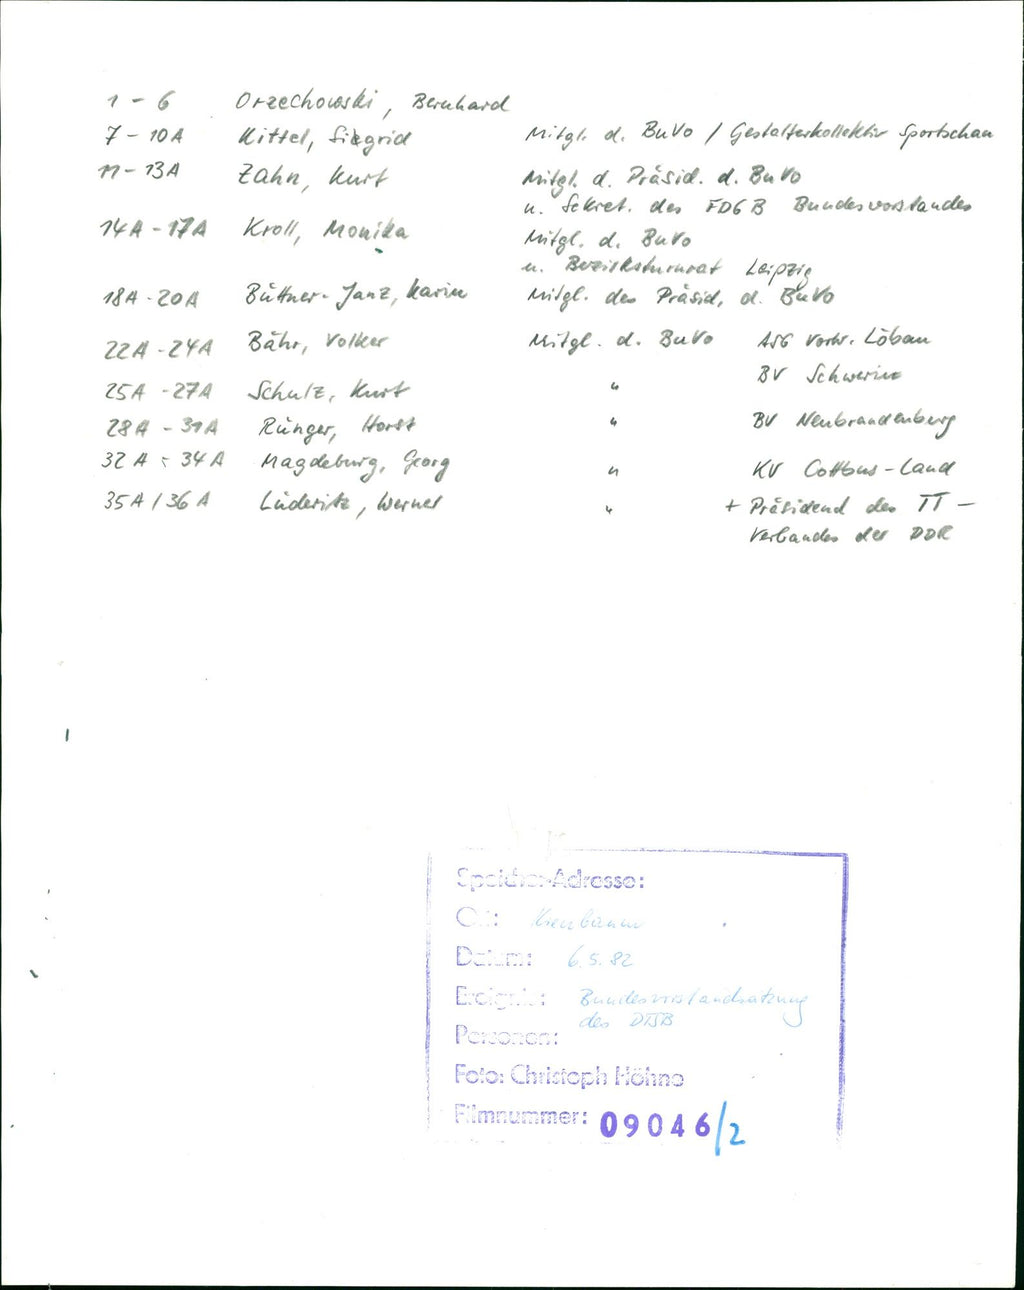 1 - 6 Orzechowski, Bernhard
7 - 10A Kittel, Siegrid Mitgl. d. BuVo / Gestalterkollektiv Sportschau
11 - 13A Zahn, Kurt Mitgl. d. Präsid. d. BuVo
u. Sekret. des FDGB Bundesvorstandes
14A - 17A Kroll, Monika Mitgl. d. BuVo
u. Bezirksturnrat Leipzig
18A - 20A Büttner-Janz, Karin Mitgl. des Präsid. d. BuVo
22A - 24A Bähr, Volker Mitgl. d. BuVo ASG Vorw. Löbau
25A - 27A Schulz, Kurt " BV Schwerin
28A - 31A Rünger, Horst " BV Neubrandenburg
32A - 34A Magdeburg, Georg " KV Cottbus-Land
35A / 36A Lüderitz, Werner " + Präsidend des TT-
Verbandes der DDR
Speicher-Adresse:
Ort: Kienbaum
Datum: 6.5.82
Ereignis: Bundesvorstandsitzung
des DTSB
Personen:
Foto: Christoph Höhne
Filmnummer: 09046/2